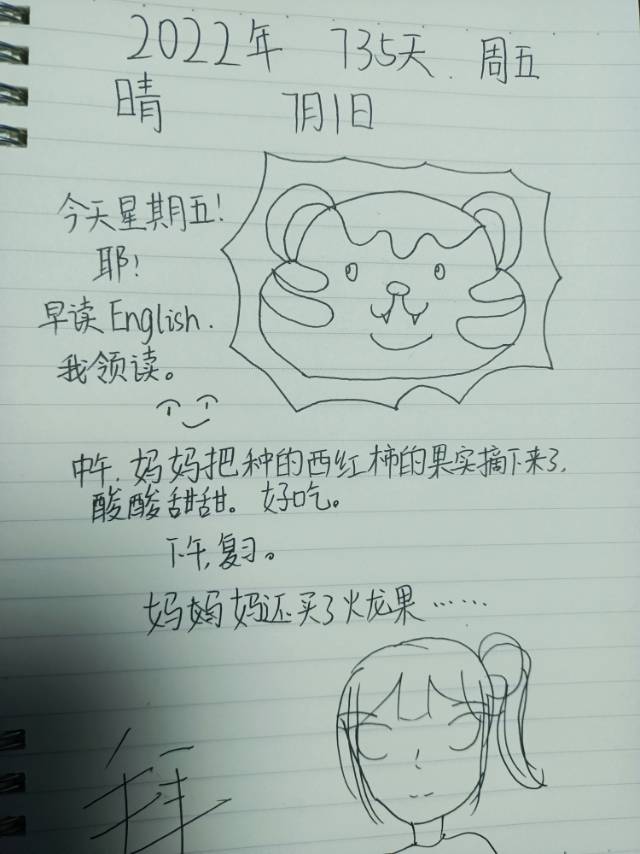 2022年 735天. 周五
晴 7月1日
今天星期五!
耶!
早读English.
我领读。
中午,妈妈把种的西红柿的果实摘下来了,
酸酸甜甜。好吃。
下午,复习。
妈妈妈还买了火龙果……
拜